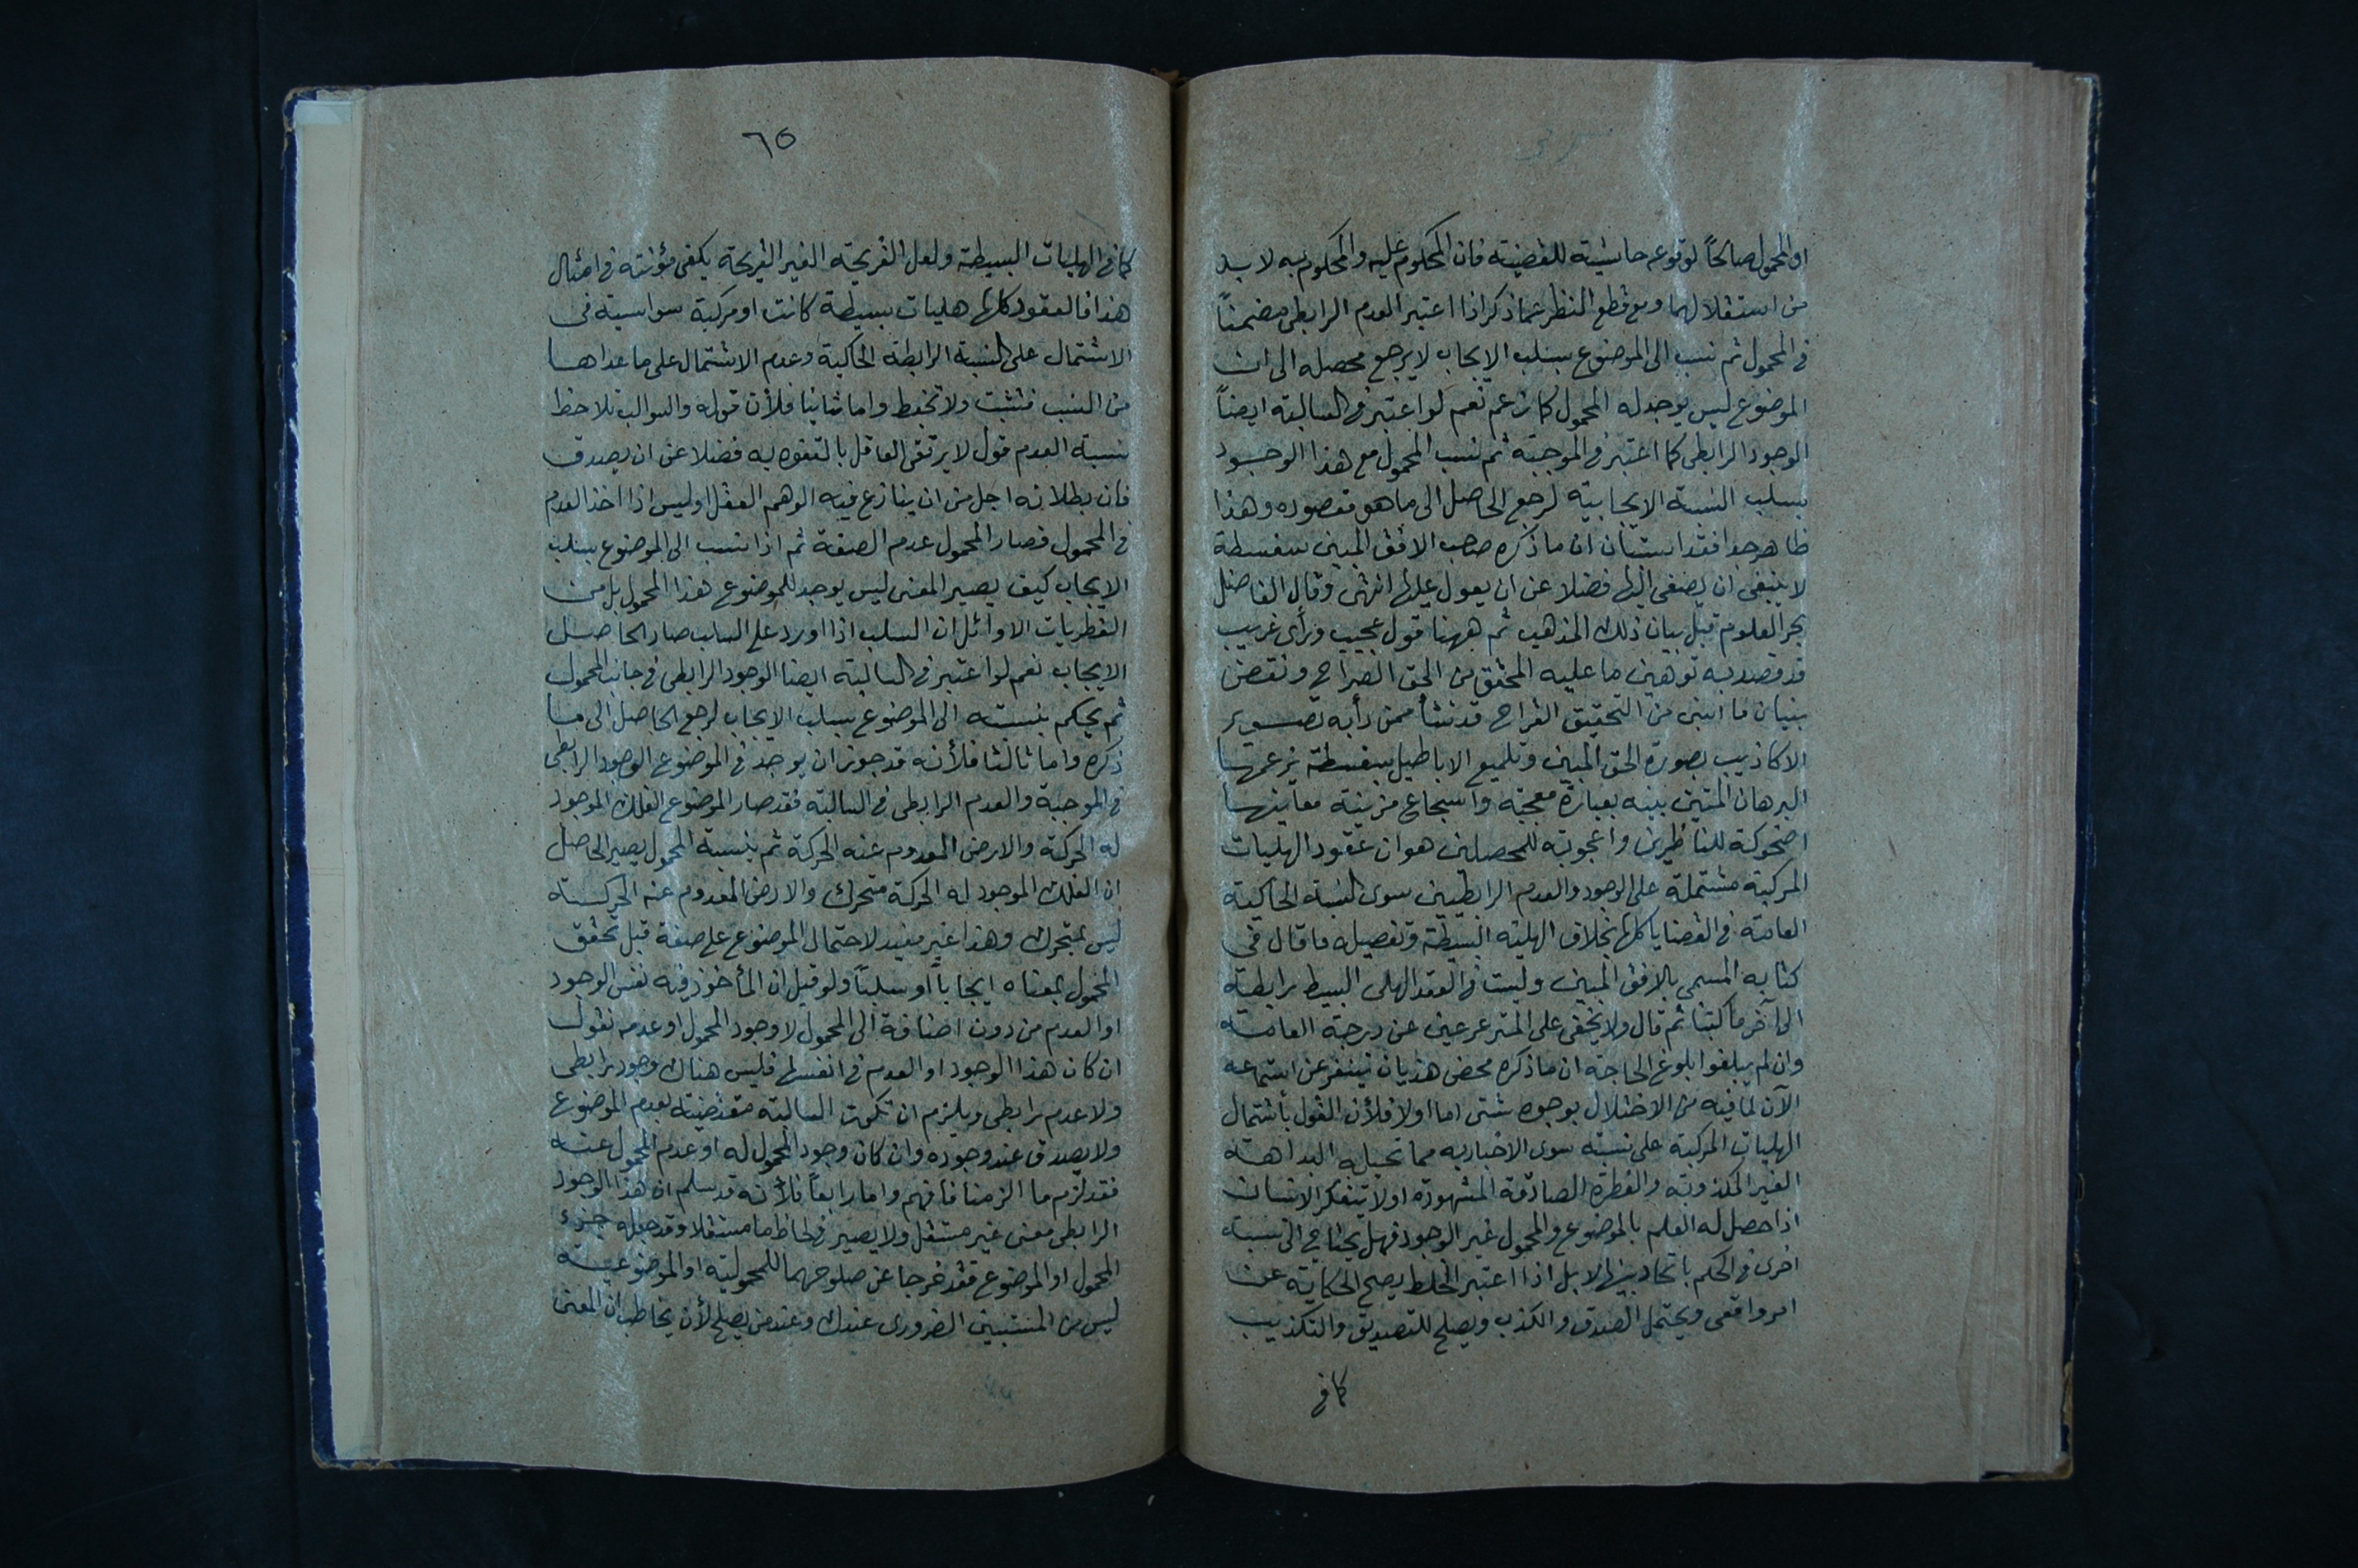 او المحمول صالحاً لوقوعه حاشيته للقضيته فان المحكوم عليه والمحكوم به لا بد
من استقلالهما ومع قطع النظر عما ذكر اذا اعتبر العدم الرابطى مضمناً
فى المحمول ثم نسب الى الموضوع بسلب الايجاب لا يرجع محصله الى ان
الموضوع ليس يوجد له المحمول كما زعم نعم لو اعتبر فى السالبته ايضاً
الوجود الرابطى كما اعتبر فى الموجبته ثم نسب المحمول مع هذا الوجود
بسلب النسبته الايجابيته لرجع الحاصل الى ما هو مقصوده وهذا
ظاهر جدا فقد استبان ان ما ذكره صاحب الافق المبين سفسطة
لا ينبغى ان يصغى اليها فضلا عن ان يعول عليها انتهى وقال الفاضل
بحر العلوم قبل بيان ذلك المذهب ثم ههنا قول عجيب ورأى غريب
قد قصد به توهين ما عليه المحقق من الحق الصراح ونقض
بنيان ما ابتنى من التحقيق القراح قد نشأ ممن رأيه تصوير
الاكاذيب بصورة الحق المبين وتلميع الاباطيل بسفسطة يزعمها
البرهان المتين بينه بعبارة معجبة واسجاع مزينة معانيها
اضحوكة للناظرين واعجوبة للمحصلين هو ان عقود الهليات
المركبة مشتملة على الوجود والعدم الرابطيين سوى النسبته الحاكيته
العامته فى القضايا كلها بخلاف الهليته البسيطة وتفصيله ما قال فى
كتابه المسمى بالافق المبين وليست فى العقد الهلى البسيط رابطته
الى آخر ما كتبنا ثم قال ولا يخفى على المترعرعين عن درجته العامته
وان لم يبلغوا بلوغ الحاجة ان ما ذكره محض هذيان يتنفر عن استماعه
الآن لما فيه من الاختلال بوجوه شتى اما اولا فلأن القول بأشتمال
الهليات المركبة على نسبته سوى الاخباريه مما تحيله البداهته
الغير المكذوبته والفطرة الصادقة المشهودة اولا تتفكر الانسان
اذا حصل له العلم بالموضوع والمحمول غير الوجود فهل يحتاج الى نسبته
اخرى فى الحكم باتحاد بينهما لا بل اذا اعتبر الخلط يصح الحكاية عن
امر واقعى ويحتمل الصدق والكذب ويصلح للتصديق والتكذيب
كما فى
٦٥
كما فى الهليات البسيطة ولعل القريحته الغير القريحة يكفى مؤنته فى امثال
هذا فالعقود كلها هليات بسيطة كانت او مركبة سواسيته فى
الاشتمال على النسبة الرابطة الحاكية وعدم الاشتمال على ما عداها
من النسب فتثبت ولا تخبط واما ثانيا فلأن قوله والسوالب تلاحظ
بنسبته العدم قول لا يرتقى العاقل بالتفوه به فضلا عن ان يصدق
فان بطلانه اجل من ان ينازع فيه الوهم العقل اوليس اذا اخذ العدم
فى المحمول فصار المحمول عدم الصفة ثم اذا نسب الى الموضوع بسلب
الايجاب كيف يصير المعنى ليس يوجد للموضوع هذا المحمول بل من
الفطريات الاوائل ان السلب اذا اورد على السلب صار الحاصل
الايجاب نعم لو اعتبر فى السالبته ايضا الوجود الرابطى فى جانب المحمول
ثم يحكم بنسبته الى الموضوع بسلب الايجاب لرجع الحاصل الى ما
ذكره واما ثالثا فلأنه قد جوز ان يوجد فى الموضوع الوجود الرابطى
فى الموجبة والعدم الرابطى فى السالبته فقد صار الموضوع الفلك الموجود
له الحركة والارض المعدوم عنه الحركة ثم بنسبته المحمول يصير الحاصل
ان الفلك الموجود له الحركة متحرك والارض المعدوم عنه الحركته
ليس بمتحرك وهذا غير مفيد لاحتمال الموضوع على صفة قبل تحقق
المحمول بمعناه ايجاباً او سلباً ولو قيل ان المأخوذ فيه نفس الوجود
او العدم من دون اضافة الى المحمول لا وجود المحمول او عدمه نقول
ان كان هذا الوجود او العدم فى انفسها فليس هناك وجود رابطى
ولا عدم رابطى ويلزم ان تكون السالبته مقتضيته لعدم الموضوع
ولا يصدق عند وجوده وان كان وجود المحمول له او عدم المحمول عنه
فقد لزم ما الزمنا فافهم واما رابعاً فلأنه قد سلم ان هذا الوجود
الرابطى معنى غير مستقل ولا يصير فى لحاظ ما مستقلا وقد جعله جزء
المحمول او الموضوع فقد خرجا عن صلوحهما للمحموليته او الموضوعيته
ليس من المنتسبين الضرورى عندك وعند من يصلح لأن يخاطب ان المعنى